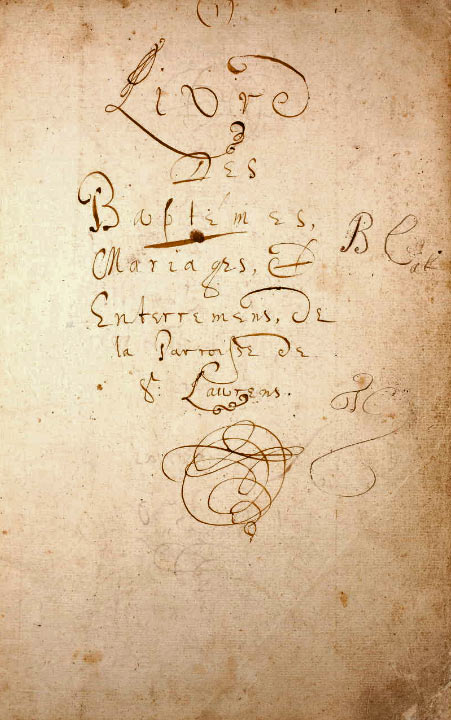 (1)
Livre
Des
Baptémes,
Mariages, &
Enterremens, De
la Parroisse de
St. Laurens.
B